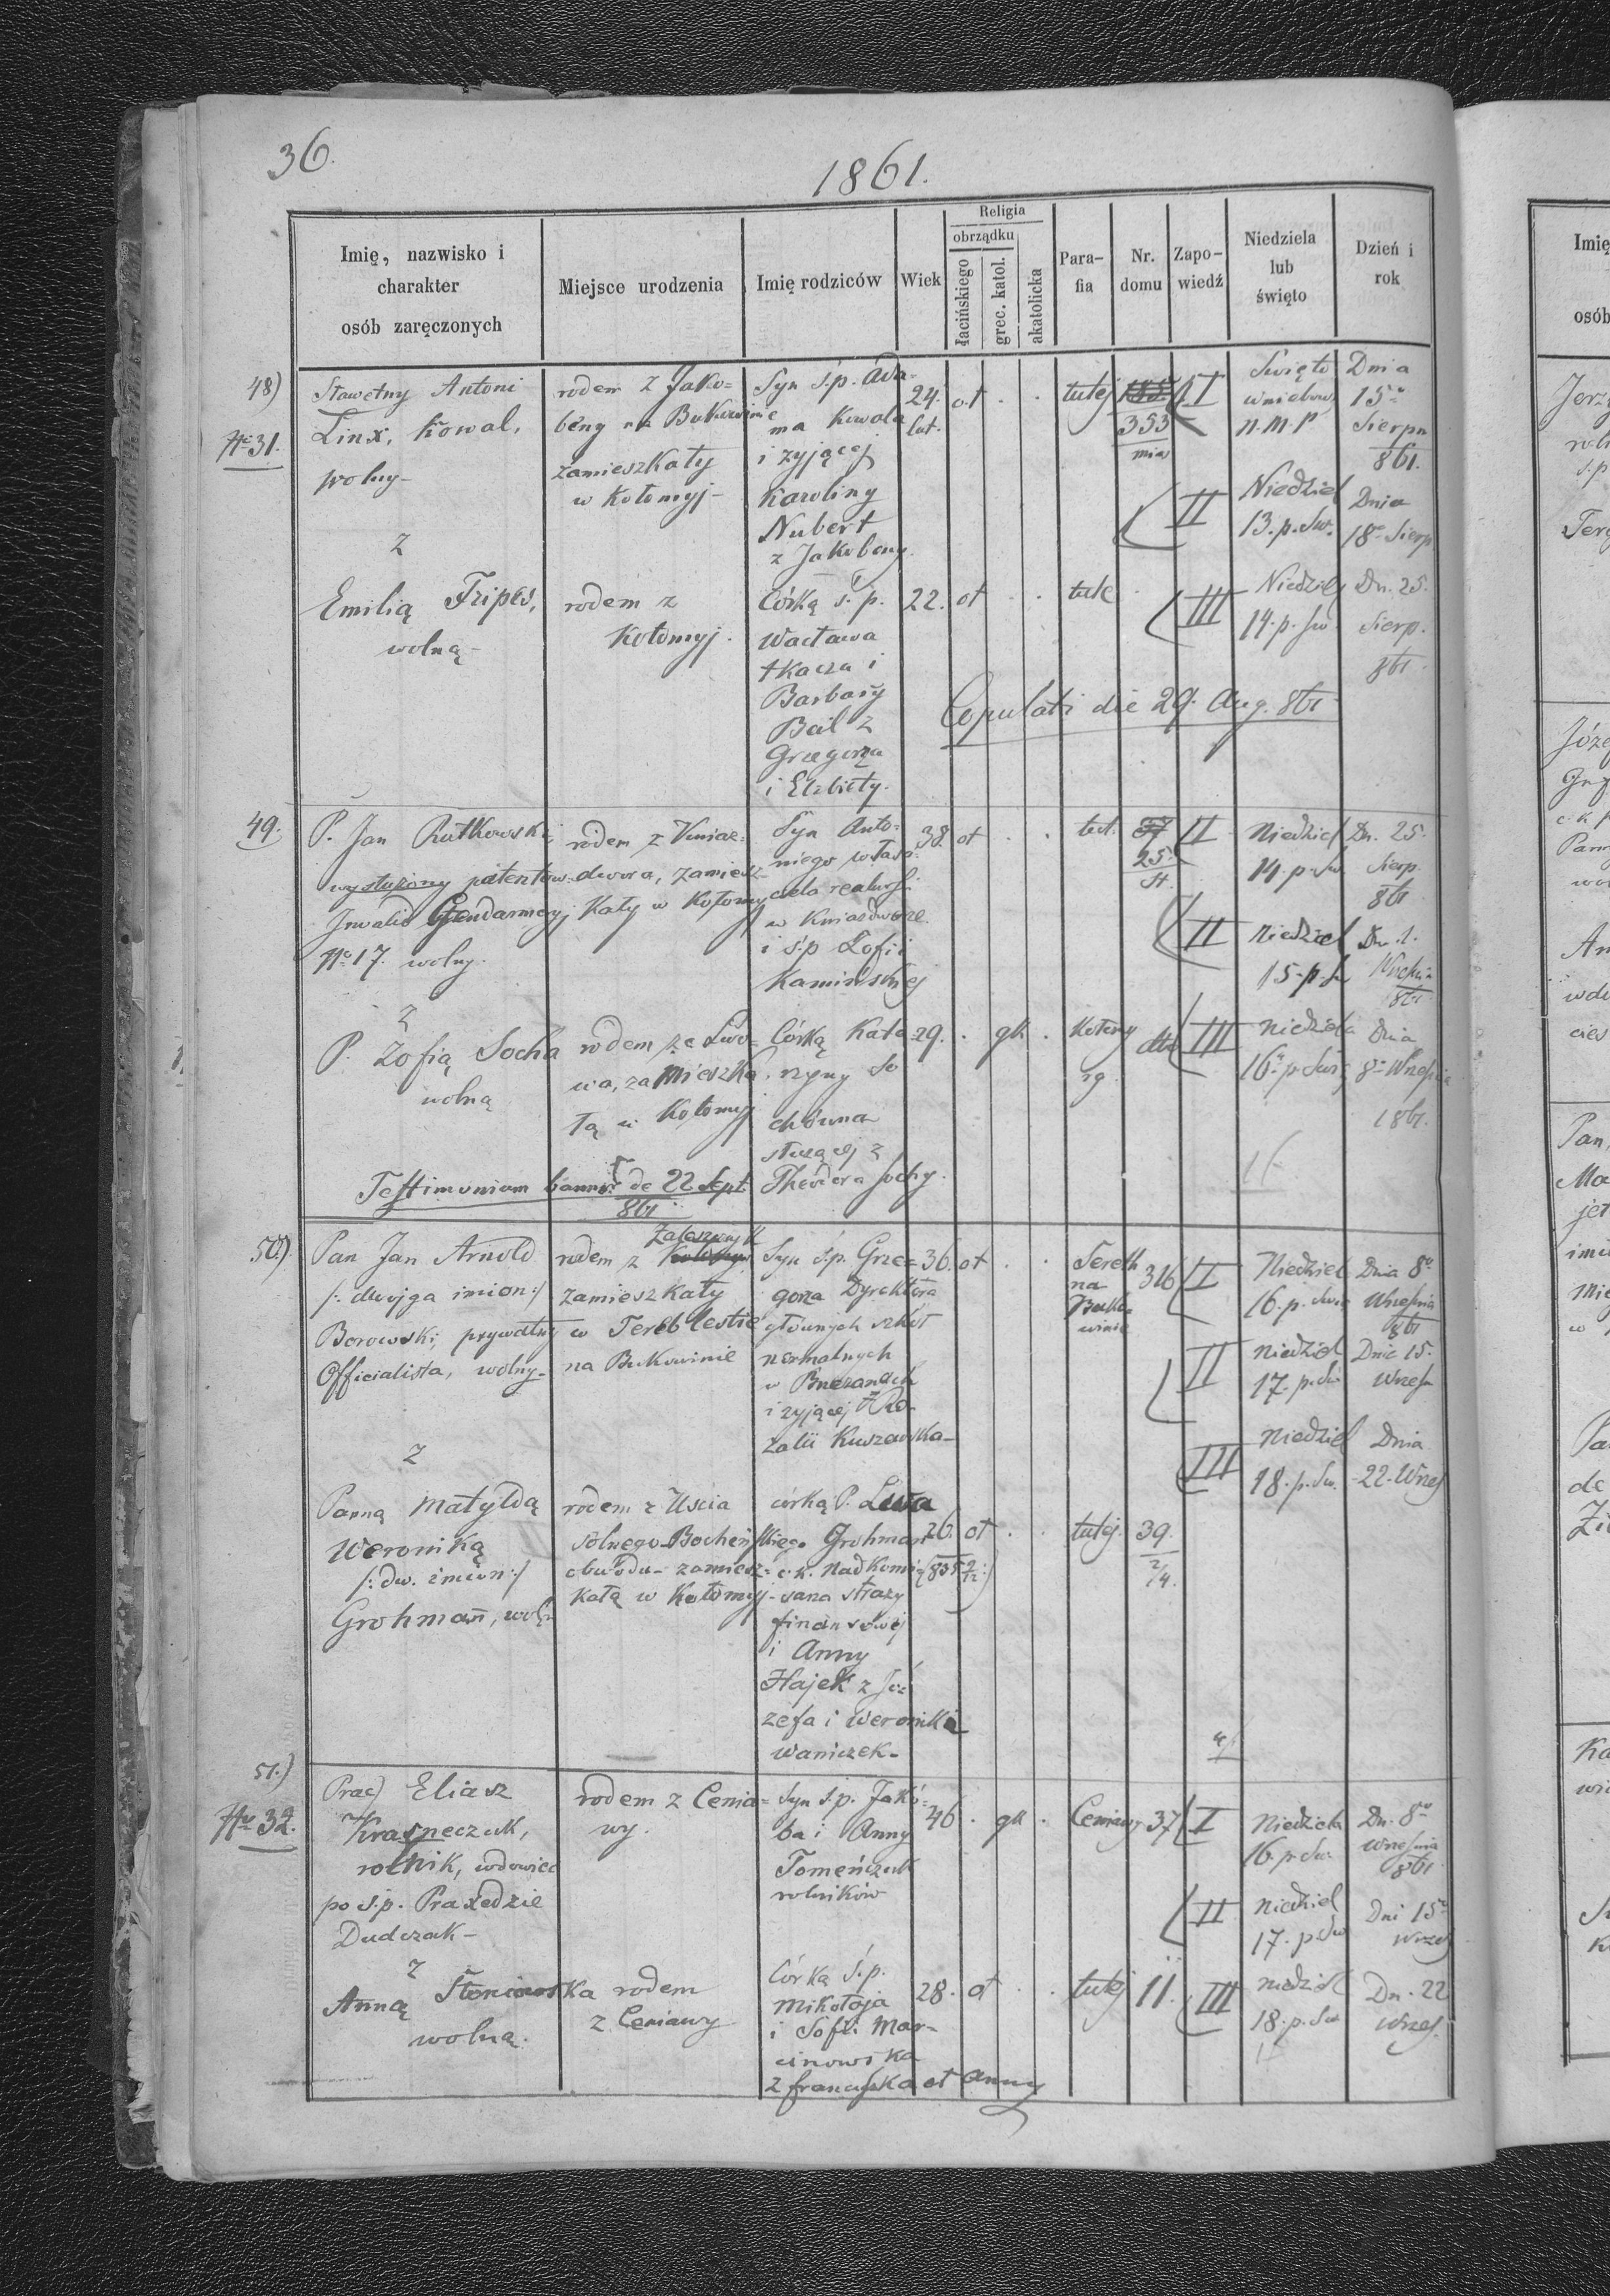 36.
1861.
Imię, nazwisko i charakter osób zaręczonych
Miejsce urodzenia
Imię rodziców
Wiek
Religia
obrządku
łacińskiego
grec. katol.
akatolicka
Para-
fia
Nr.
domu
Zapo-
wiedź
Niedziela
lub
święto
Dzień i
rok
48)
No 31.
Sławetny Antoni
Linx, Kowal,
wolny -
z
Emilią Tripes,
wolną -
rodem z Jako=
beny na Bukowinie
zamieszkały
w Kołomyj -
rodem z
Kołomyj.
Syn ś.p. Ada=
ma Kowala
i żyjącej
Karoliny
Nubert
z Jakobeny
Córką ś.p.
Wacława
tkacza i
Barbary
Bail z
Grzegorza
i Elżbiety.
24.
lat.
ot
22. ot
tutej
353
mia
tute
I
Święto
wniebow
N.M.P
Dnia
15o
Sierpn
861.
II
Niedziel
13. p. Św.
Dnia
18o Sierp
III
Niedziely
14. p. Św
Dn. 25.
Sierp.
861.
Copulati die 29. Aug. 861
49.
P. Jan Rutkowski
wysłużony patentow.
Inwalid Gendarmeryj
No 17. wolny.
z
P. Zofią Socha
wolną
rodem z Kniaz=
dwora, zamiesz=
kały w Kołomyj
rodem ze Lwo=
wa, zamieszka
łą w Kołomyj
Syn Anto=
niego właści
ciela realnośi
w Kniazdworze
i ś.p Zofii
Kamińskiej
Córką Kata
rzyny So
chówna
służącej z
Theodora Sochy.
38. ot
29. gk
tut.
25.
Kołomy
II
Niedziel
14. p. Św
Dn. 25.
Sierp.
861
II
Niedziel
15. p. Ś
Dn. 1.
Września
861
III
Niedziela
16. p. Świ
Dnia
8o Września
1861.
Testimonium bannor de 22 Sept
861
50.)
Pan Jan Arnold
/: dwojga imion :/
Borowski, prywatny
Officialista, wolny -
z
Panną Matyldą
Weroniką
/: dw. imion :/
Grohmann, wolą
Zaleszczyk
rodem z
zamieszkały
w Tereblestie
na Bukowinie
rodem z Uścia
Solnego Bocheńskiego
obwodu - zamiesz=
kałą w Kołomyj -
Syn ś.p. Grze=
gorza Dyrektora
głównych szkół
normalnych
w Brzeżanach
i żyjącej Ro=
zalii Kuszewska -
córką P.
Grohmann
c.k. Nadkomi
sarza straży
finansowej
i Anny
Hajek z Jó=
zefa i Weroniki
Waniczek -
36. ot
26. ot
Sereth
na
Buko=
winie
316
tutej. 39.
I
Niedziel
16. p. Świą
Dnia 8o
Września
861
II
Niedziel
17. p. Św
Dnia 15.
Wrześ
III
Niedziel
18. p. Św.
Dnia
22. Wrześ
51.)
No 32.
Prac) Eliasz
Krasneczuk,
rolnik, wdowiec
po ś.p. Praxedzie
Dudczak -
z
Anną Słoniowska
wolną.
rodem z Cenia=
wy.
rodem
z Ceniawy
Syn ś.p. Jakó=
ba i Anny
Tomeńczuk
rolników
Córką ś.p.
Mikołaja
i Sofii Mar=
cinowska
z Franciszka et Anny
46. gk
28. ot
Ceniawy 37
tutej 11.
I
Niedziela
16. p. Św.
Dn. 8o
Września
861
II
Niedziel
17. p. Św
Dni 15o
Wrześ
III
Niedziel
18. p. Św
Dn. 22
Wrześ.